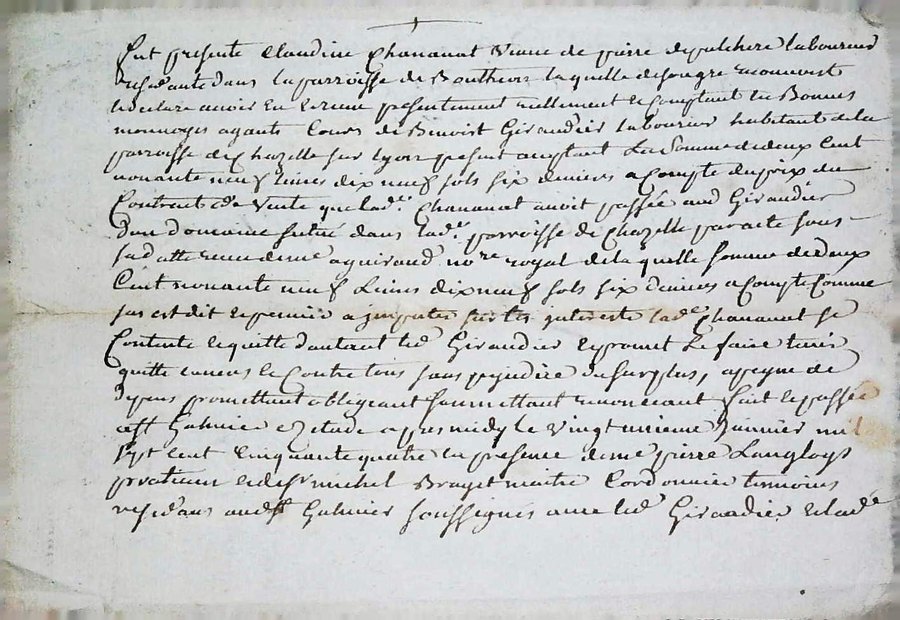 fut presente Claudine Chananat veuve de pierre depulchere laboureur
residante dans la parroisse de Bontheon laquelle de son gre
declare avoir eu et receu presentement reellement et comptant en Bonnes
monnoyes ayants Cours de Benoist Giraudier laboureur habitant de la
parroisse de Chazelle sur lyon present acceptant La Somme de deux Cent
nonante neuf livres dix neuf sols six deniers a Compte du prix du
Contract de Vente que lade. Chananat avoit passée aud Giraudier
d'un domaine scitué dans lade. parroisse de Chazelle par acte sous
sa datte receu de me aguiraud nore royal de la quelle somme de deux
Cent nonante neuf Livres dix neuf sols six deniers a Compte Comme
sus est dit et premier a jmputer sur les jnterests lade Chananat se
Contente et quitte d'autant led Giraudier et promet Le faire tenir
quitte envers et Contre tous sans prejudice du surplus, a peyne de
depens promettant obligeant soumettant renoncant fait et passée
a st Galmier etude apres midy le vingt unieme Janvier mil
sept cent Cinquante quatre en presence de me pierre Langloys
praticien et de sr michel Brayet maitre Cordonnier temoins
residans aud st Galmier soussignés avec led Giraudier et lade